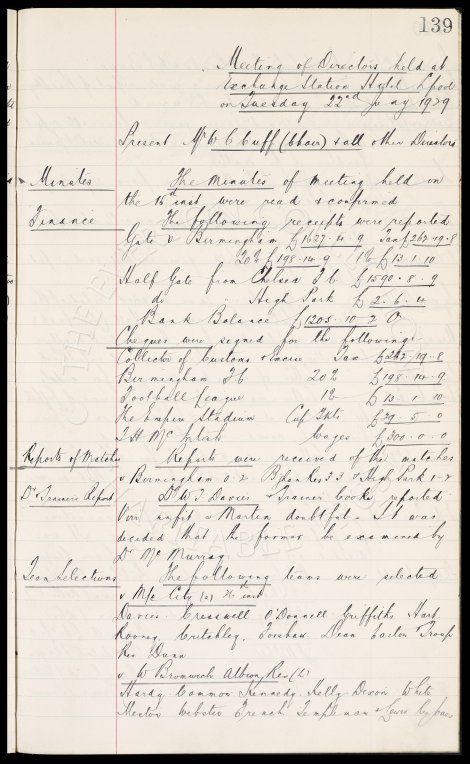 139
Meeting of Directors held at
Exchange Station Hotel L'pool
on Tuesday 22nd Jany 1929
Present Mr W C Cuff (Chair) & all other Directors
Minutes The Minutes of meeting held on
the 16th inst were read & confirmed
Finance The following receipts were reported
Gate v Birmingham £1627.14.9 Tax £262.19.8
20% £198.14.9 1% £13.1.10
Half Gate from Chelsea F.C. £1590.8.9
do High Park £2.6.4
Bank Balance £1205.10.2 O
Cheques were signed for the following:
Collector of Customs & Excise Tax £262.19.8
Birmingham F.C 20% £198.14.9
Football League 1% £13.1.10
The Empire Stadium Cup Tkts £29.5.0
Wages £300.0.0
Reports of Matches Reports were received of the matches
v Birmingham 0.2 B'ham Res 3.3 & High Park 1-2
Dr & Trainers Report Dr W.J. Davies & Trainer Cooke reported
Virr unfit & Martin doubtful. It was
decided that the former be examined by
Dr McMurray
Team Selections The following teams were selected
v M/c City (a) 26th inst
Davies. Cresswell O'Donnell Griffiths Hart
Rooney Critchley, Forshaw Dean Easton & Troup
Res Dunn
v W Bromwich Albion Res (L)
Hardy Common Kennedy Kelly Dixon White
Meston Webster French Templeman & Lewis